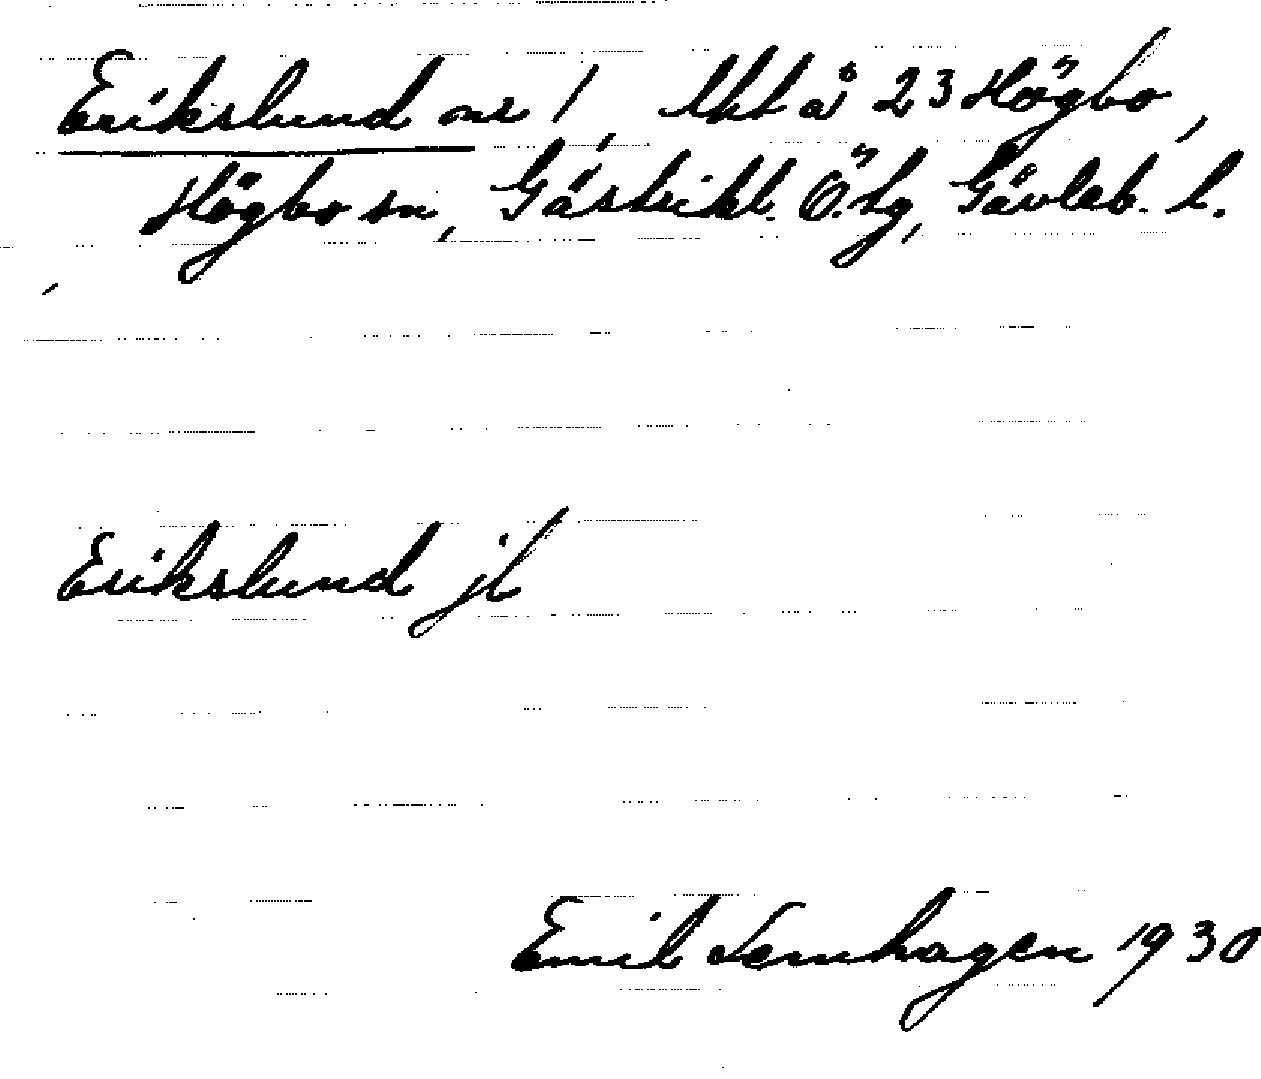 Erikslund nr 1 Utt å 23 Högbo,
Högbo sn, Gästrikl. Ö. tg, Gävleb. l.
Erikslund jl
Emil Lernhagen 1930